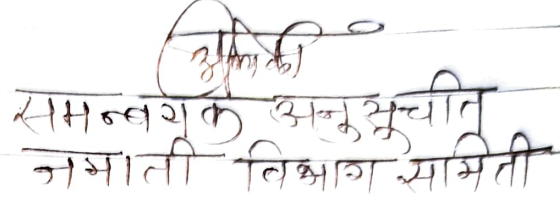 समन्बयक अनुसुचीत
जमाती विभाग समिती